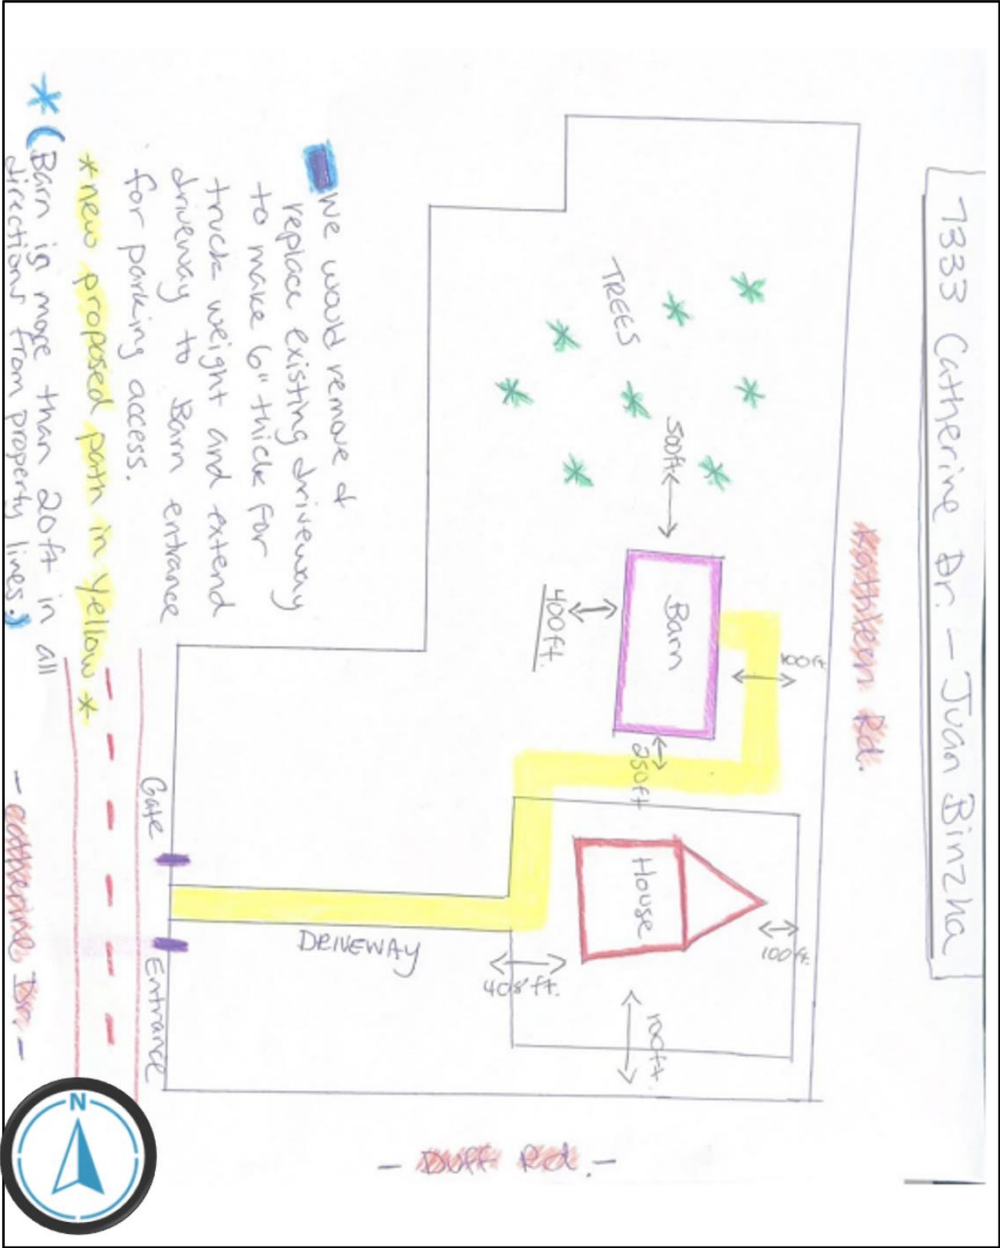 7333 Catherine Dr. - Juan Binzha
Kathleen Rd.
TREES
500ft
Barn
400ft.
100ft
250ft
House
100ft.
408'ft.
100ft
DRIVEWAY
Gate
Entrance
We would remove &
replace existing driveway
to make 6" thick for
truck weight and extend
driveway to Barn entrance
for parking access.
*new proposed path in yellow*
*(Barn is more than 20ft in all
directions from property lines.)
- Catherine Dr. -
- Duff Rd. -
N